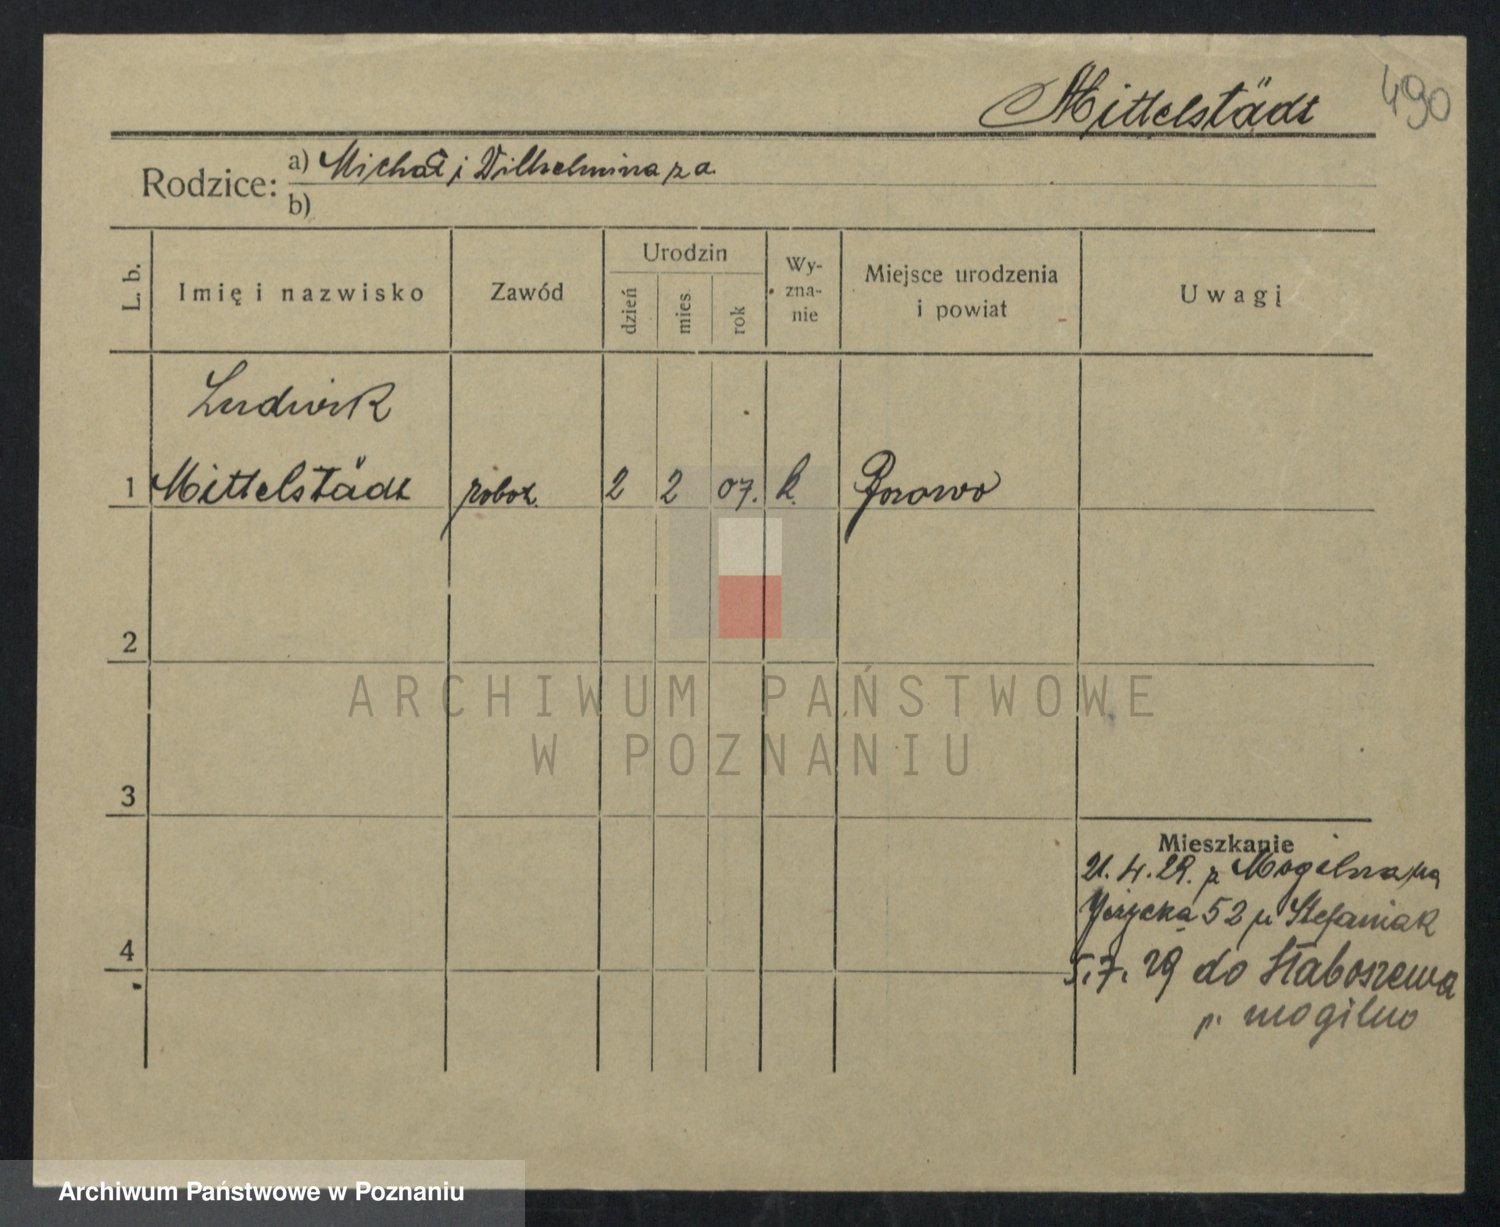 490
Mittelstädt
Rodzice: a) Michał i Wilhelmina z a
b)
L. b.
Imię i nazwisko
Zawód
Urodzin
dzień
mies
rok
Wy-
zna-
nie
Miejsce urodzenia
i powiat
Uwagi
Ludwik
1 Mittelstädt robot. 2 2 07. k.
2
3
4
Mieszkanie
21. 4. 29. z Mogilna na
Jeżycka 52 u Stefaniak
5. 7. 29 do Staboszewa
p. mogilno
ARCHIWUM PAŃSTWOWE
W POZNANIU
Archiwum Państwowe w Poznaniu